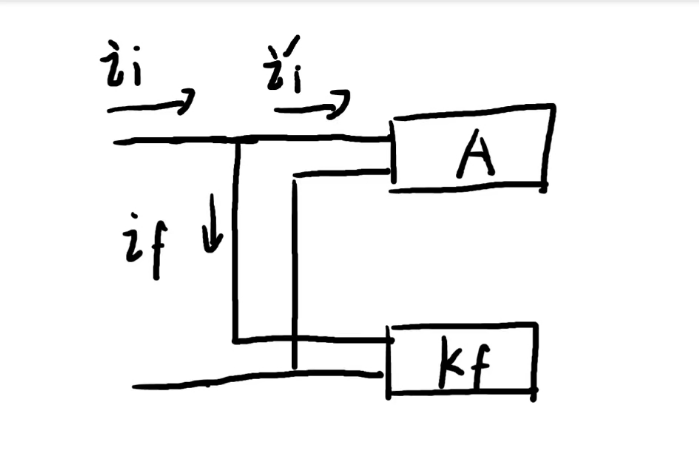 ii
i'i
A
if
kf